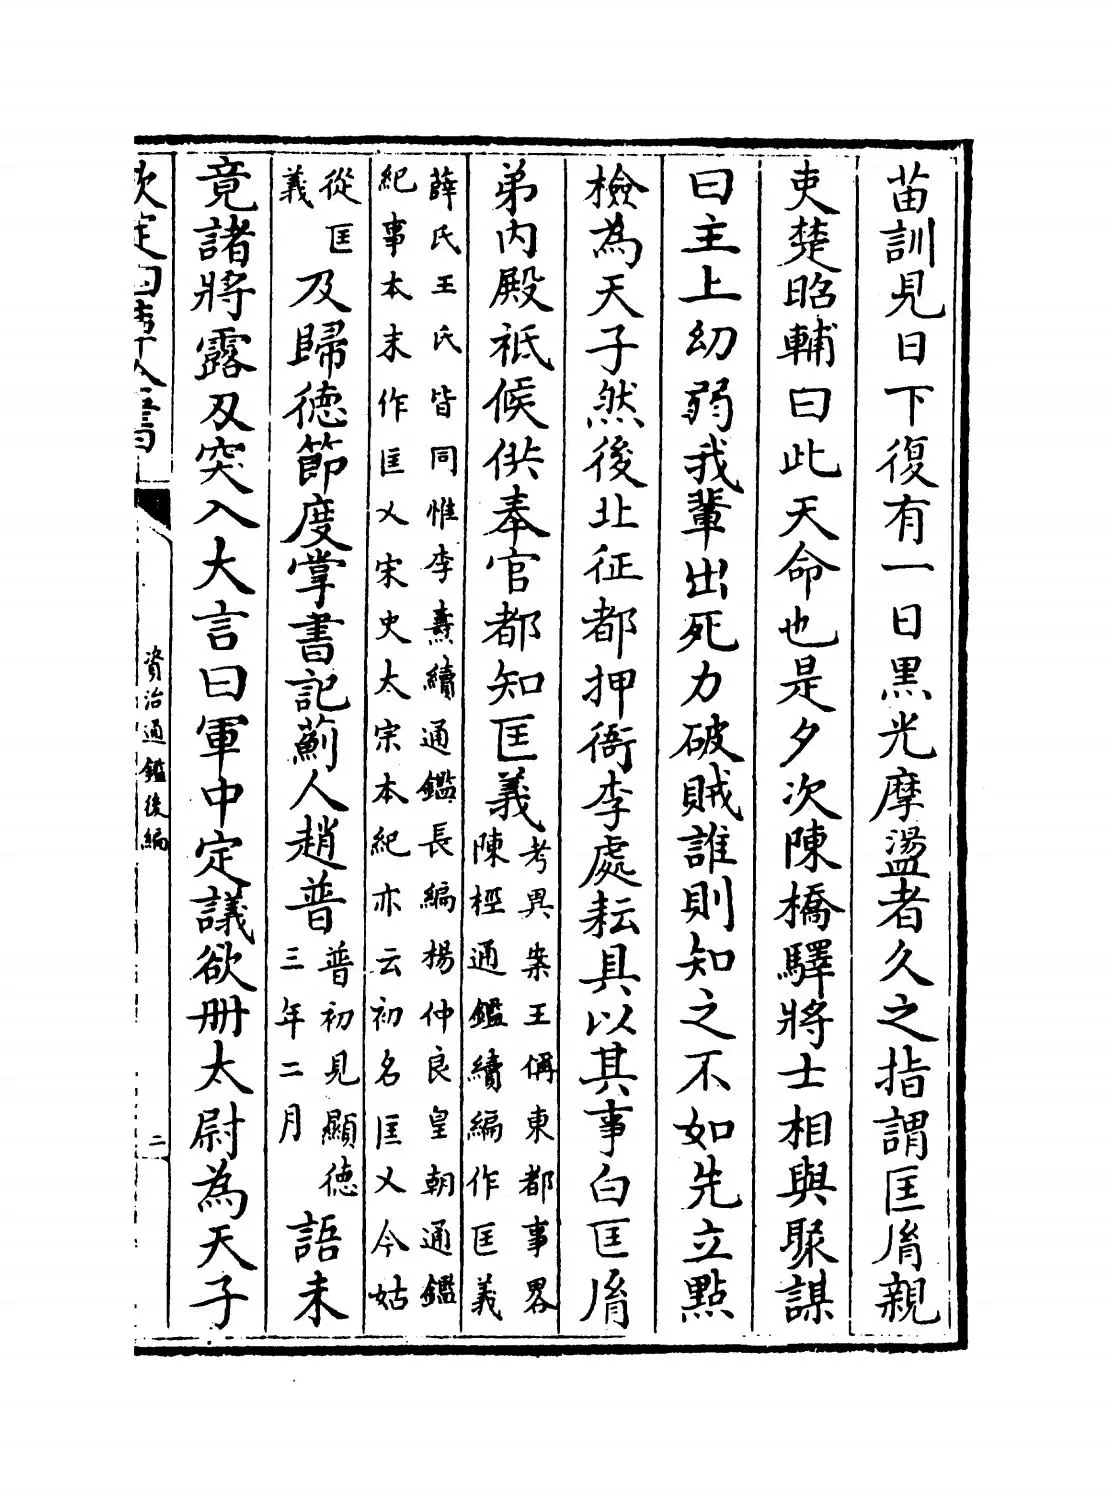 苗訓見日下復有一日黒光摩盪者久之指謂匡𦙍親
吏楚昭輔曰此天命也是夕次陳橋驛將士相與聚謀
曰主上幼弱我輩出死力破賊誰則知之不如先立點
檢為天子然後北征都押衙李處耘具以其事白匡𦙍
弟内殿祗候供奉官都知匡義
考異案王偁東都事畧
陳桱通鑑續編作匡義
薛氏王氏皆同惟李燾續通鑑長編楊仲良皇朝通鑑
紀事本末作匡乂宋史太宗本紀亦云初名匡乂今姑
從匡
義
及歸徳節度掌書記薊人趙普
普初見顯徳
三年二月
語未
竟諸將露刄突入大言曰軍中定議欲冊太尉為天子
欽定四庫全書
資治通鑑後編
二